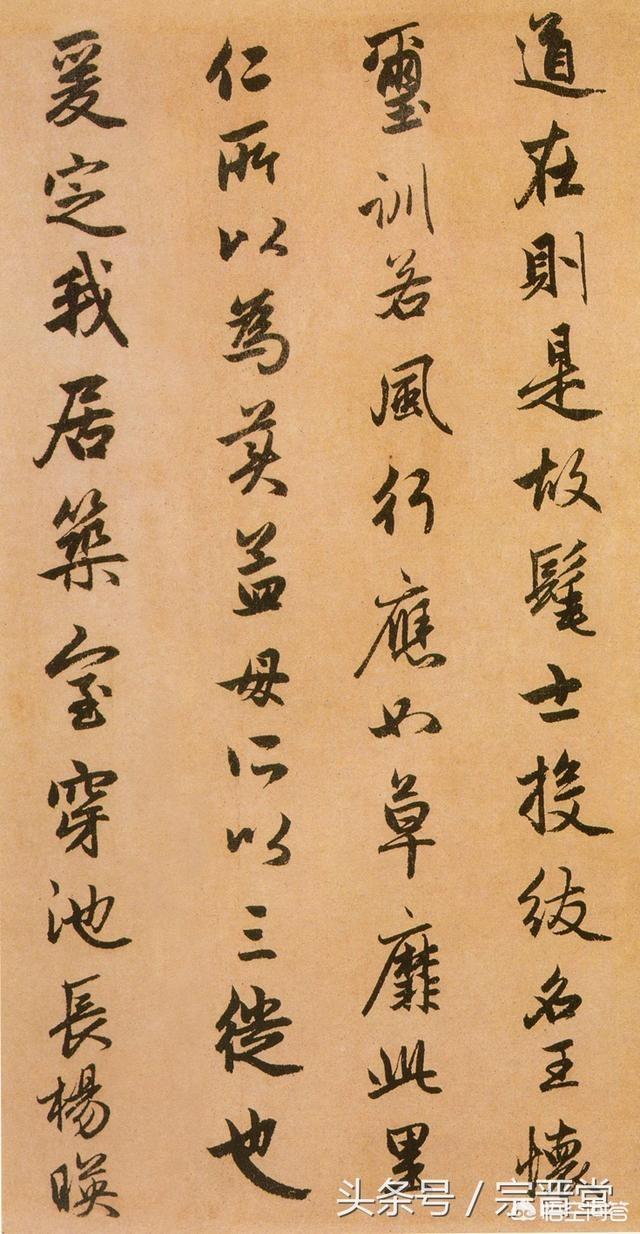 道在則是故髦士投紱名王懷
璽訓若風行應如草靡此里
仁所以為美孟母所以三徙也
爰定我居築室穿池長楊暎
头条号／宗晋堂
悟空问答